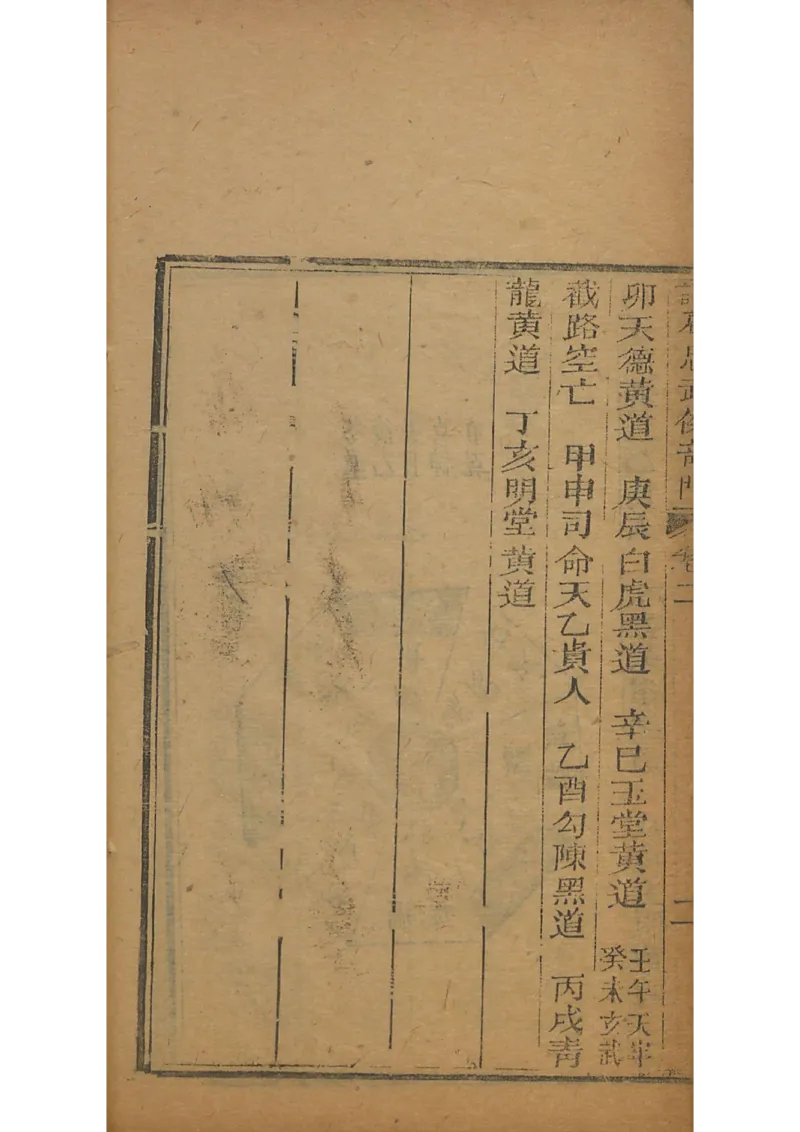 諸葛忠武侯奇門 卷二 二
卯天德黃道 庚辰白虎黑道 辛巳玉堂黃道 壬午天牢
癸未玄武
截路空亡 甲申司命天乙貴人 乙酉勾陳黑道 丙戌青
龍黃道 丁亥明堂黃道